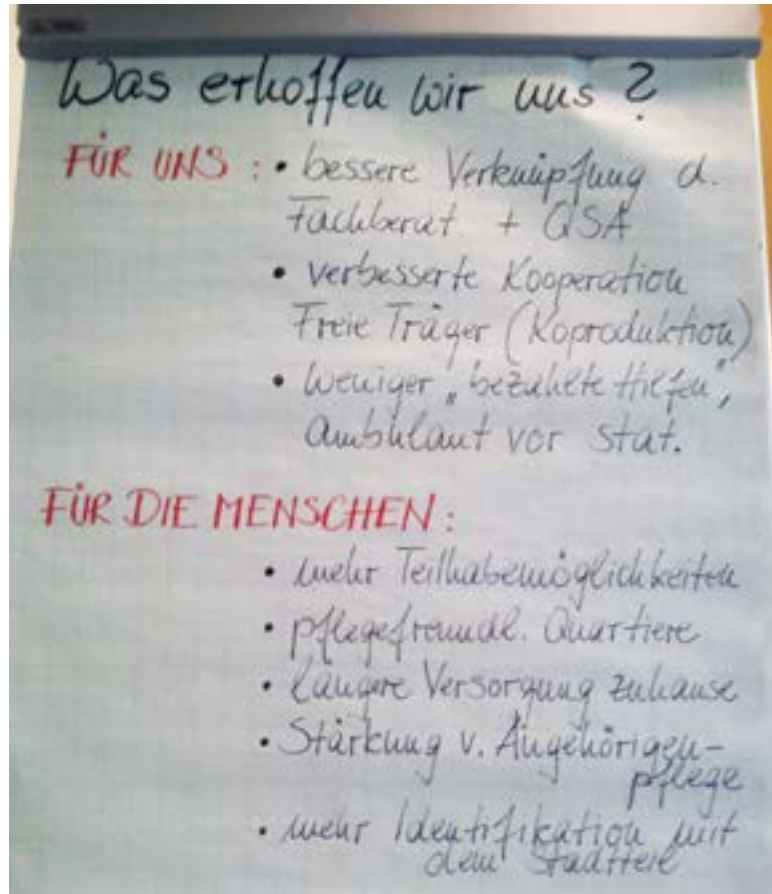 Was erhoffen wir uns ?
FÜR UNS : • bessere Verknüpfung d.
Fachberat. + QSA
• verbesserte Kooperation
Freie Träger (Koproduktion)
• weniger „bezahlte Hilfen",
ambulant vor stat.
FÜR DIE MENSCHEN :
• mehr Teilhabemöglichkeiten
• pflegefreundl. Quartiere
• längere Versorgung zuhause
• Stärkung v. Angehörigen-
pflege
• mehr Identifikation mit
dem Stadtteil